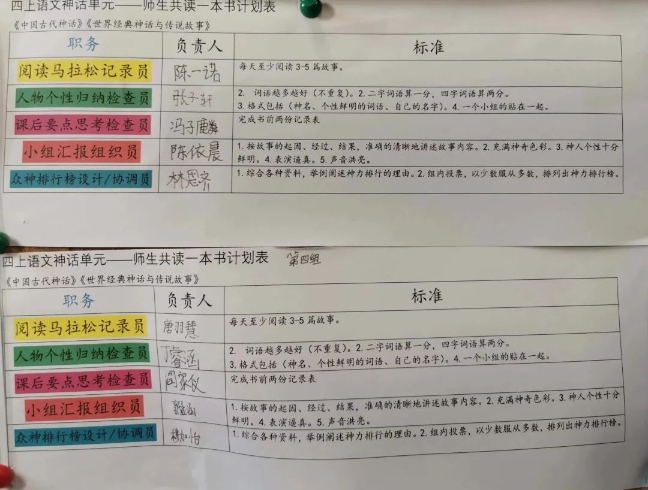 四上语文神话单元——师生共读一本书计划表
《中国古代神话》《世界经典神话与传说故事》
职务 负责人 标准
阅读马拉松记录员 陈一诺 每天至少阅读3-5篇故事。
人物个性归纳检查员 张子轩 2. 词语越多越好(不重复)。2.二字词语算一分,四字词语算两分。
3.格式包括(神名、个性鲜明的词语、自己的名字)。4.一个小组的粘在一起。
课后要点思考检查员 冯子麟 完成书前两份记录表
小组汇报组织员 陈依晨 1.按故事的起因、经过、结果,准确的清晰地讲述故事内容。2.充满神奇色彩。3.神人个性十分
鲜明。4.表演逼真。5.声音洪亮。
众神排行榜设计/协调员 林思齐 1.综合各种资料,举例阐述神力排行的理由。2.组内投票,以少数服从多数,排列出神力排行榜。
四上语文神话单元——师生共读一本书计划表 第四组
《中国古代神话》《世界经典神话与传说故事》
职务 负责人 标准
阅读马拉松记录员 唐羽慧 每天至少阅读3-5篇故事。
人物个性归纳检查员 2. 词语越多越好(不重复)。2.二字词语算一分,四字词语算两分。
3.格式包括(神名、个性鲜明的词语、自己的名字)。4.一个小组的粘在一起。
课后要点思考检查员 周家仪 完成书前两份记录表
小组汇报组织员 1.按故事的起因、经过、结果,准确的清晰地讲述故事内容。2.充满神奇色彩。3.神人个性十分
鲜明。4.表演逼真。5.声音洪亮。
众神排行榜设计/协调员 1.综合各种资料,举例阐述神力排行的理由。2.组内投票,以少数服从多数,排列出神力排行榜。